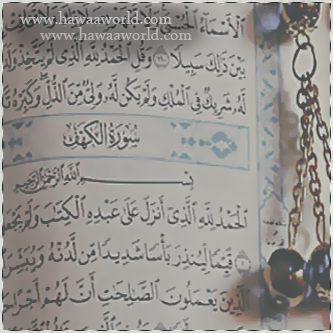 www.hawaaworld.com
www.hawaaworld.com
الْأَسْمَاءُ الْحُسْنَىٰ
بَيْنَ ذَٰلِكَ سَبِيلًا ١١٠ وَقُلِ الْحَمْدُ لِلَّهِ الَّذِي لَمْ يَتَّخِذْ
لَهُ شَرِيكٌ فِي الْمُلْكِ وَلَمْ يَكُن لَّهُ وَلِيٌّ مِّنَ الذُّلِّ وَكَبِّرْهُ
سُورَةُ الْكَهْفِ
بِسْمِ اللَّهِ الرَّحْمَٰنِ الرَّحِيمِ
الْحَمْدُ لِلَّهِ الَّذِي أَنزَلَ عَلَىٰ عَبْدِهِ الْكِتَابَ وَلَمْ يَجْعَل
قَيِّمًا لِّيُنذِرَ بَأْسًا شَدِيدًا مِّن لَّدُنْهُ وَيُبَشِّرَ
الَّذِينَ يَعْمَلُونَ الصَّالِحَاتِ أَنَّ لَهُمْ أَجْرًا